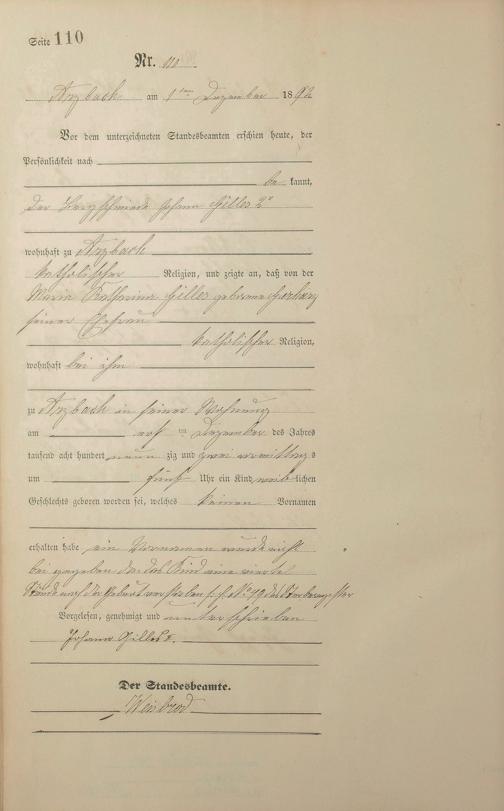 Seite 110
Nr. 110
Arzbach am 1ten Dezember 1892
Vor dem unterzeichneten Standesbeamten erschien heute, der
Persönlichkeit nach
be kannt,
der Bergschmied Johann Gilles 2r
wohnhaft zu Arzbach
katholischer Religion, und zeigte an, daß von der
Maria Katharina Gilles geborene
seiner Ehefrau
katholischer Religion,
wohnhaft bei ihm
zu Arzbach in seiner Wohnung
am ersten Dezember des Jahres
tausend acht hundert neun zig und zwei vormittags
um fünf Uhr ein Kind weib lichen
Geschlechts geboren worden sei, welches keinen Vornamen
erhalten habe ein Vornamen wurde nicht
bei gegeben da das Kind eine viertel
Stunde nach der Geburt verstorben No 19 des Sterberegister
Vorgelesen, genehmigt und unterschrieben
Johann Gilles 2.
Der Standesbeamte.
Weisbrod